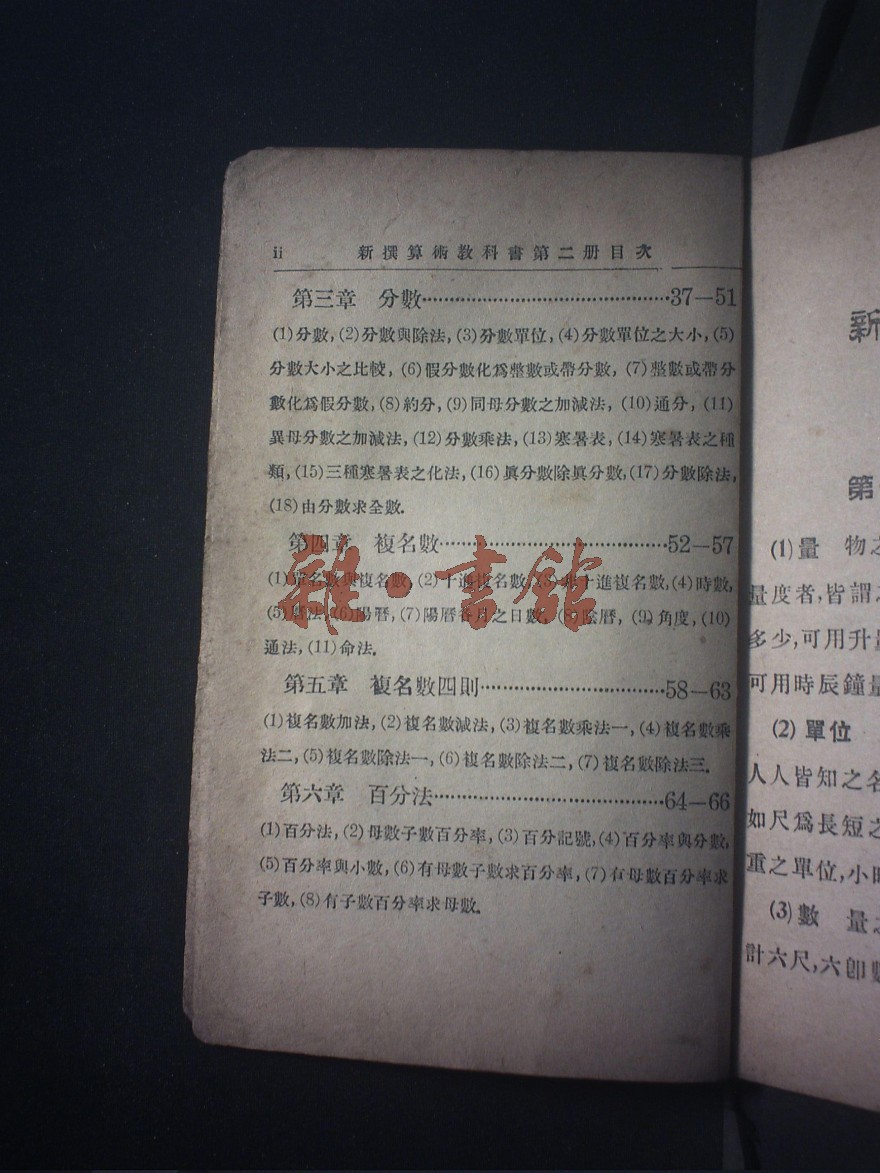 ii 新撰算術教科書第二册目次
第三章 分數……………………………………37—51
(1)分數,(2)分數與除法,(3)分數單位,(4)分數單位之大小,(5)
分數大小之比較,(6)假分數化爲整數或帶分數,(7)整數或帶分
數化爲假分數,(8)約分,(9)同母分數之加減法,(10)通分,(11)
異母分數之加減法,(12)分數乘法,(13)寒暑表,(14)寒暑表之種
類,(15)三種寒暑表之化法,(16)眞分數除眞分數,(17)分數除法,
(18)由分數求全數.
第四章 複名數……………………………………52—57
(1)單名數與複名數,(2)十進複名數,(3)非十進複名數,(4)時數,
(5)曆法,(6)陽曆,(7)陽曆各月之日數,(8)陰曆,(9)角度,(10)
通法,(11)命法.
第五章 複名數四則……………………………58—63
(1)複名數加法,(2)複名數減法,(3)複名數乘法一,(4)複名數乘
法二,(5)複名數除法一,(6)複名數除法二,(7)複名數除法三.
第六章 百分法……………………………………64—66
(1)百分法,(2)母數子數百分率,(3)百分記號,(4)百分率與分數,
(5)百分率與小數,(6)有母數子數求百分率,(7)有母數百分率求
子數,(8)有子數百分率求母數.
雜·書館
新
第
(1)量 物之
量度者,皆謂
多少,可用升
可用時辰鐘量
(2)單位
人人皆知之名
如尺爲長短之
重之單位,小時
(3)數 量之
計六尺,六卽